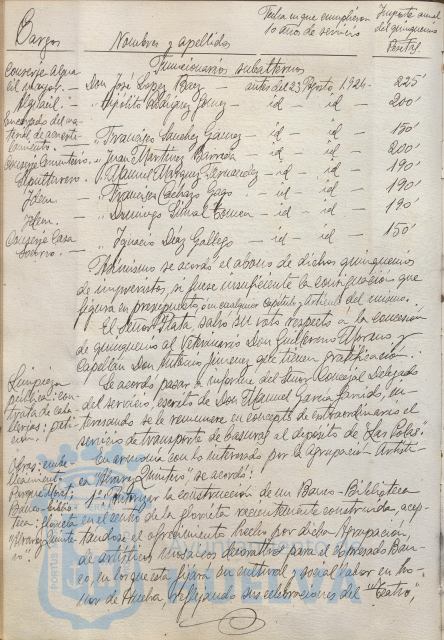 Cargos
Nombres y apellidos
Fecha en que cumplieron
10 año de servicio
Importe anual
del quinquenio
Pesetas
Funcionarios subalternos
Conserje Algua-
cil mayor. — Don José López Baez — antes del 23 Agosto, 1924 — 225'
Alguacil. — " Hipólito Rodríguez Gómez — id — id — 200'
Encargado del ma-
terial de
" Francisco Sánchez Gómez — id — id — 150'
" Juan Martínez Barroso — id — id — 200'
" Manuel Márquez Fernández — id — id — 190'
Idem. — " Francisco Gago — id — id — 190'
Idem. — " Domingo — id — id — 190'
Conserje Casa
Socorro. — " Ignacio Díaz Gallego — id — id — 150'
Asimismo se acordó el abono de dichos quinquenios
de imprevistos, si fuese insuficiente la consignación que
figura en presupuesto, o en cualquier capítulo y artículo del mismo.
El Señor Mata, salvó su voto respecto á la concesión
de quinquenio al Veterinario Don Guillermo y
Capellán Don Antonio Jiménez que tienen gratificación.
Limpieza
pública: con-
trata de caba-
llerías; peti-
ción.
Se acordó pasar a informe del Señor Concejal Delegado
del servicio, escrito de Don Manuel García Garrido, in-
teresando se le remunere en concepto de extraordinario el
servicio de transporte de basuras al depósito de "Las Colas".
Obras: embe-
llecimiento
Parque Moret;
Banco-biblio-
teca: glorieta
"Alvarez Quinte-
ro".
En armonía con lo informado por la Agrupación Artísti-
ca "Alvarez Quintero" se acordó:
1º Autorizar la construcción de un Banco-Biblioteca
en el centro de la glorieta recientemente construida, acep-
tándose el ofrecimiento hecho por dicha Agrupación,
de artísticos mosaicos decorativos para el expresado Ban-
co, en los que esta fijará su cultural y social labor en ho-
nor de Huelva, reflejando sus celebraciones del "Teatro",